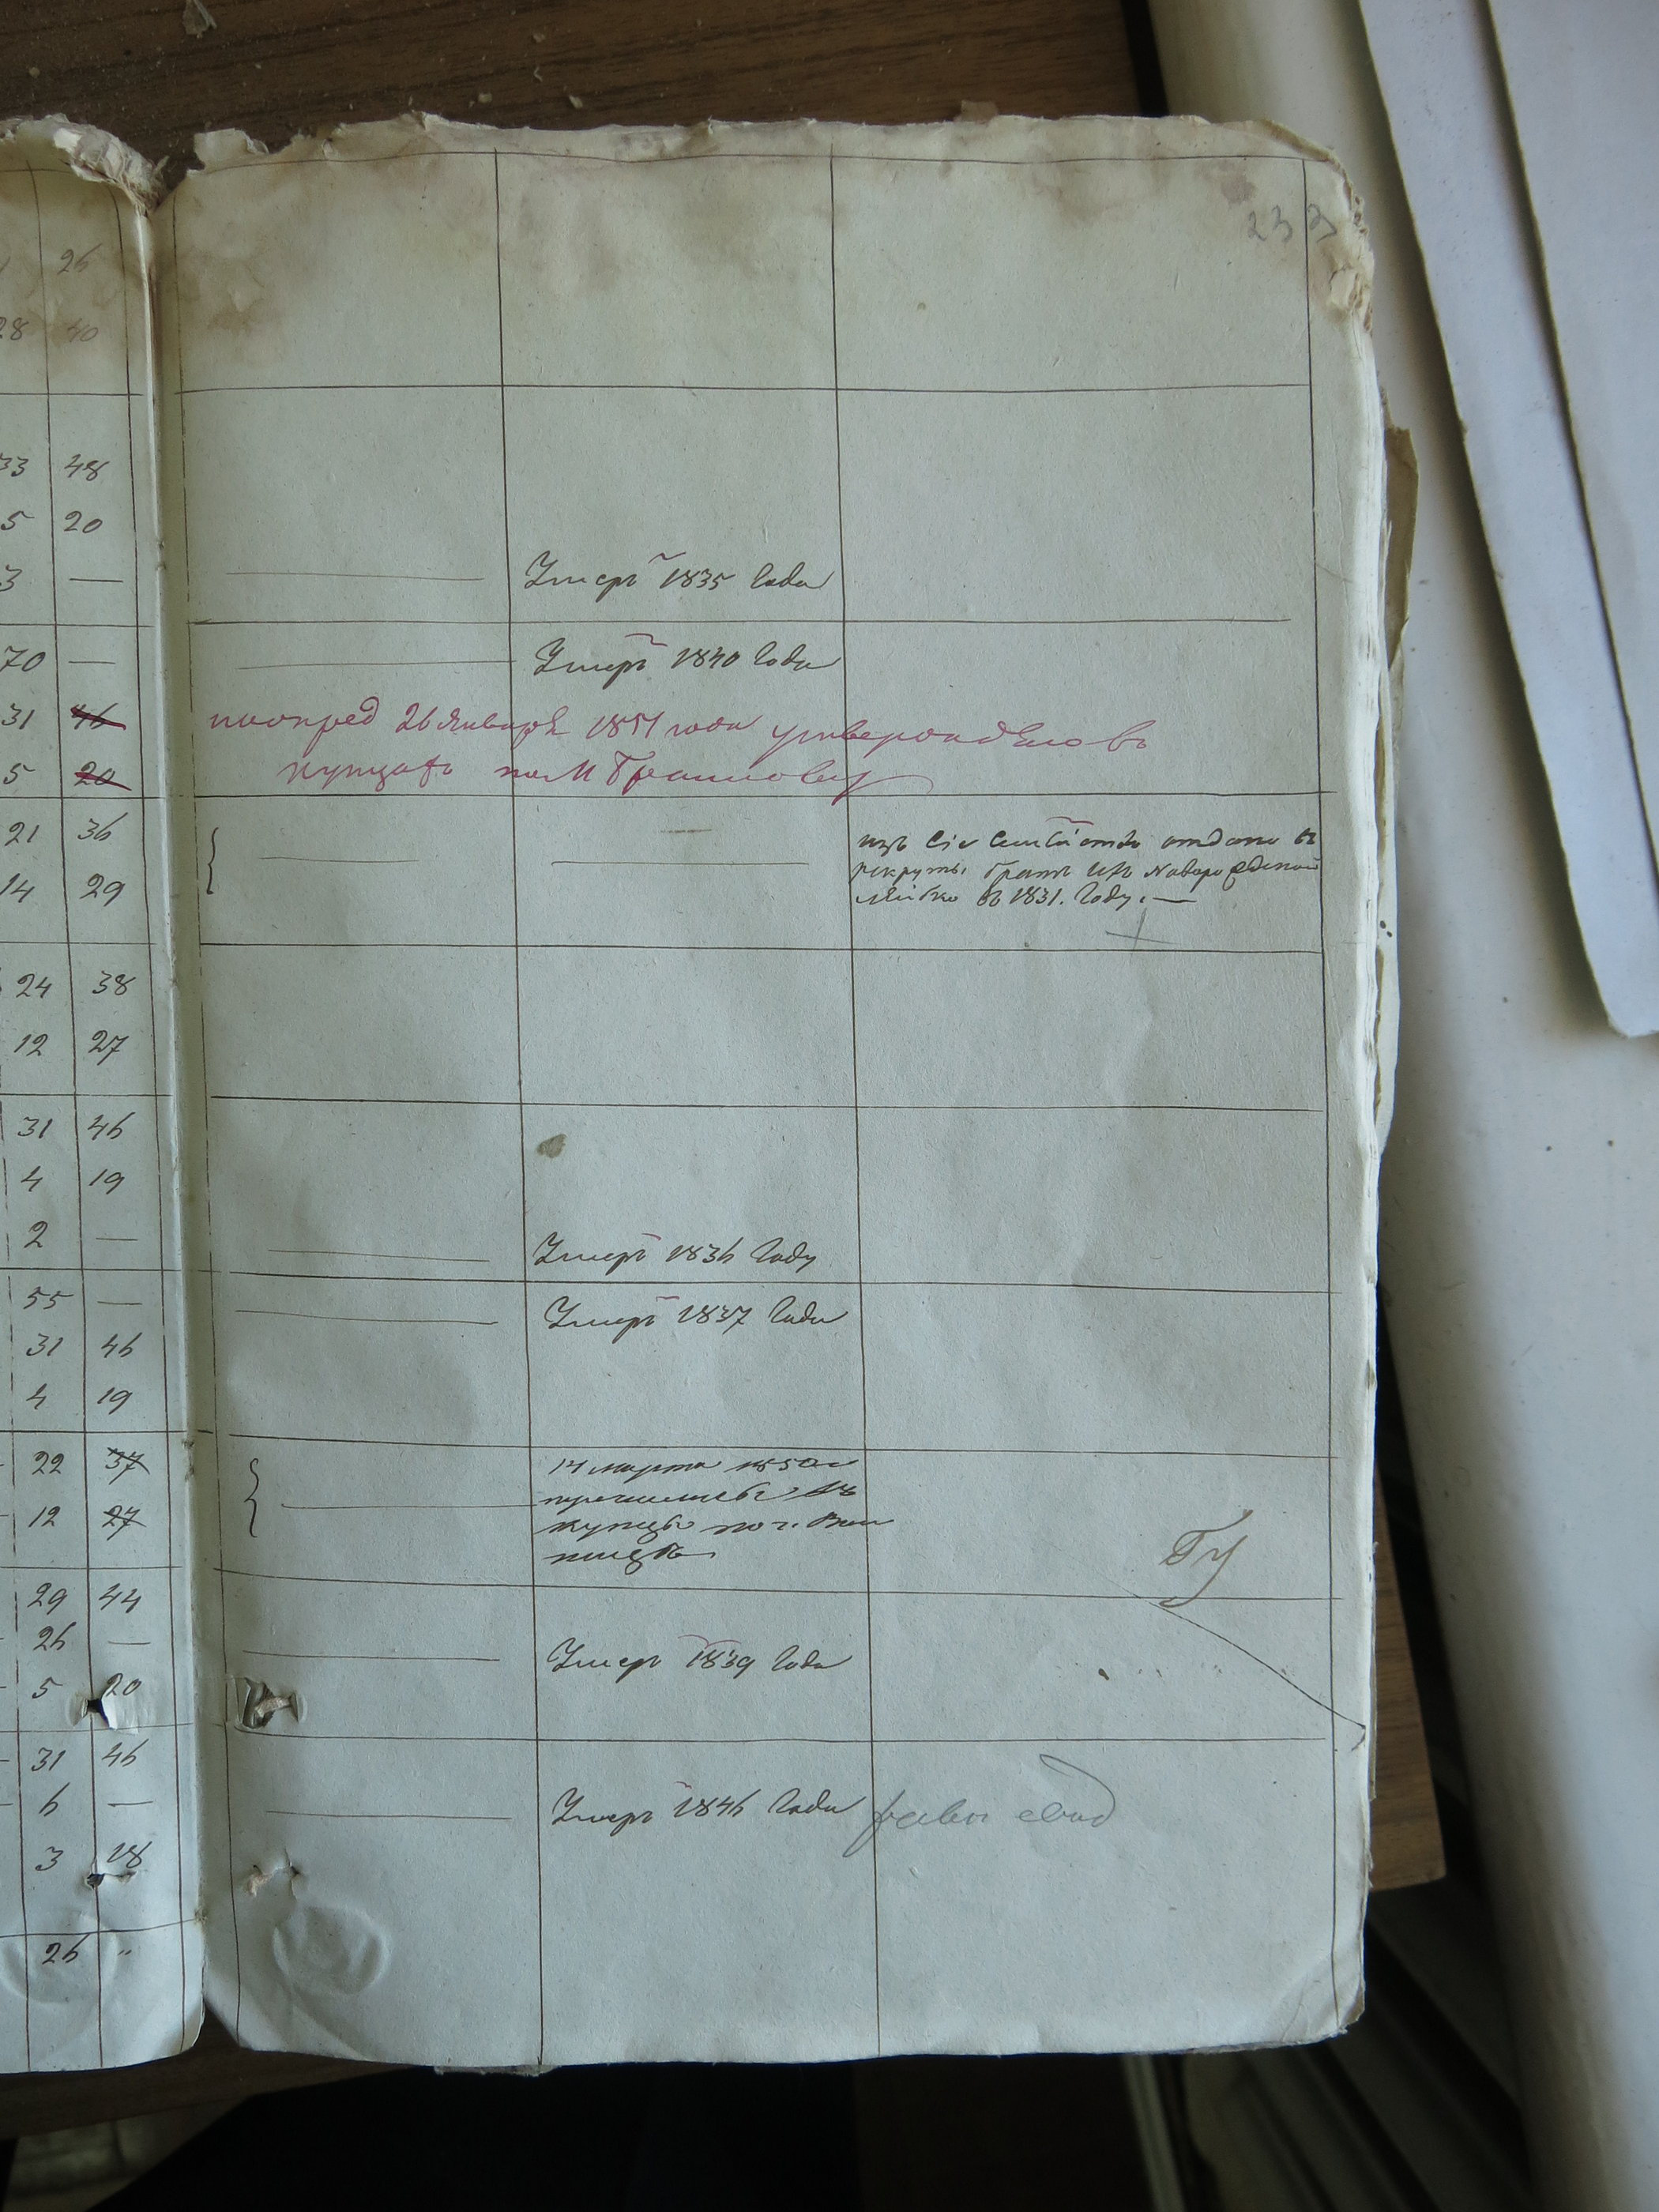 232
26
28 40
33 48
5 20
3 — Умеръ 1835 года
70 — Умеръ 1840 года
31 46 по опред 26 Января 1851 года утверждено въ
5 20 купцахъ по М
21 36 изъ сего семейства отдано въ
14 29 рекруты братъ ихъ
Лейбко въ 1831. году. —
24 38
12 27
31 46
4 19
2 — Умеръ 1836 году
55 — Умеръ 1837 года
31 46
4 19
22 37 14 марта 1850 г
перечислены въ
12 27 купцы по г.
29 44
26 — Умеръ 1839 года
5 20
31 46
6 — Умеръ 1846 года
3 18
26 "